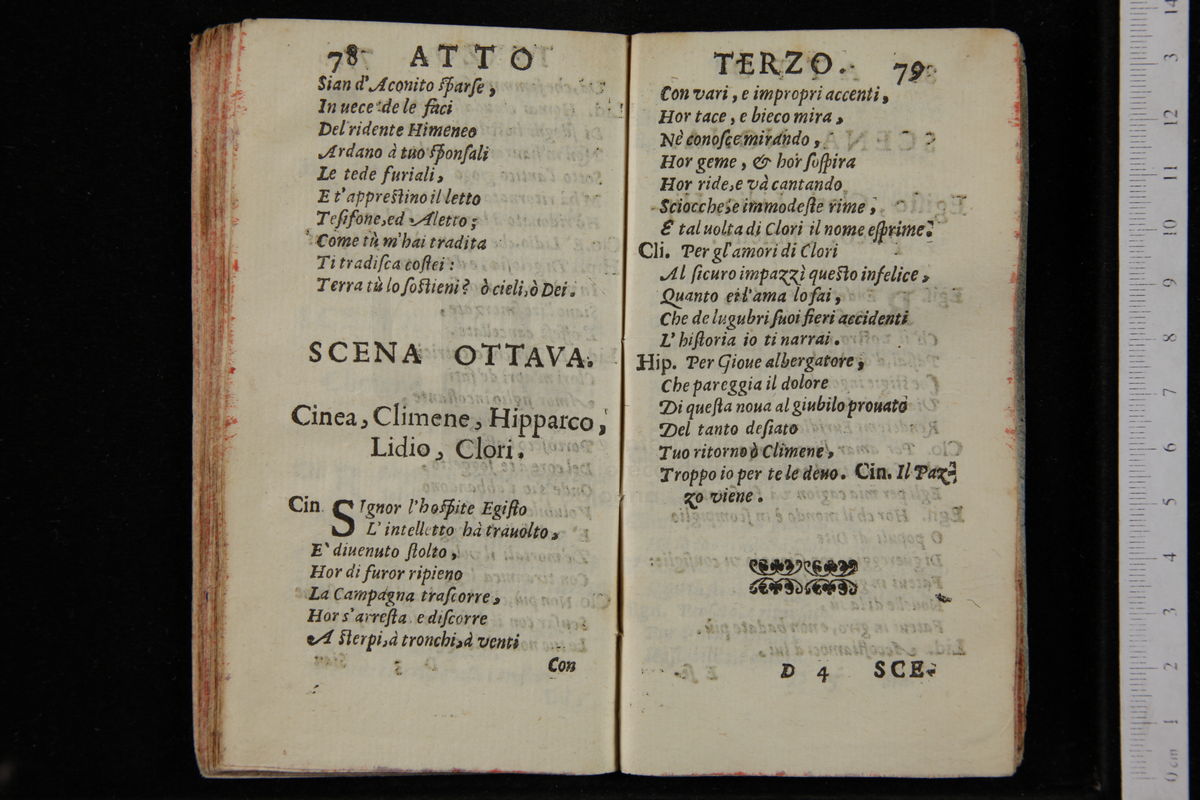 78 ATTO
Sian d'Aconito sparſe,
In uece de le faci
Del ridente Himeneo
Ardano à tuo sponſali
Le tede furiali,
E t'apprestino il letto
Teſifone, ed Aletto;
Come tù m'hai tradita
Ti tradiſca coſtei:
Terra tù lo ſostieni? ò cieli, ò Dei.
SCENA OTTAVA.
Cinea, Climene, Hipparco,
Lidio, Clori.
Cin. SIgnor l'hospite Egiſto
L'intelletto hà trauolto,
E' diuenuto ſtolto,
Hor di furor ripieno
La Campagna traſcorre,
Hor s'arreſta e diſcorre
A sterpi, à tronchi, à venti
Con
TERZO. 79
Con vari, e impropri accenti,
Hor tace, e bieco mira,
Nè conoſce mirando,
Hor geme, & hor ſoſpira
Hor ride, e và cantando
Sciocche, e immodeſte rime,
E tal uolta di Clori il nome eſprime.
Cli. Per gl'amori di Clori
Al ſicuro impazzì questo infelice,
Quanto ei l'ama lo ſai,
Che de lugubri ſuoi fieri accidenti
L'hiſtoria io ti narrai.
Hip. Per Gioue albergatore,
Che pareggia il dolore
Di queſta noua al giubilo prouato
Del tanto deſiato
Tuo ritorno ò Climene,
Troppo io per te le deuo. Cin. Il Paz-
zo viene.
D 4 SCE-